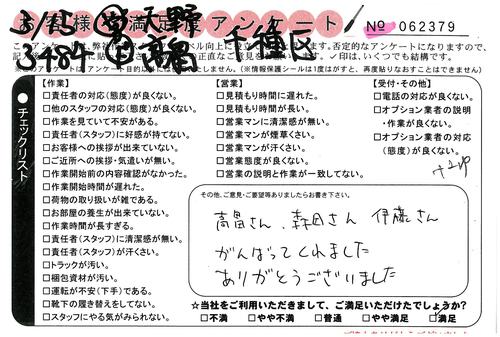 お客様満足度アンケート
№ 062379
3/15 天野
3484 高畠 千種区
チェックリスト
【作業】
□責任者の対応(態度)が良くない。
□他のスタッフの対応(態度)が良くない。
□作業を見ていて不安がある。
□責任者(スタッフ)に好感が持てない。
□お客様への挨拶が出来ていない。
□ご近所への挨拶・気遣いが無い。
□作業開始前の内容確認がなかった。
□作業開始時間が遅れた。
□荷物の取り扱いが雑である。
□お部屋の養生が出来ていない。
□作業時間が長すぎる。
□責任者(スタッフ)に清潔感が無い。
□責任者(スタッフ)が汗くさい。
□トラックが汚い。
□梱包資材が汚い。
□運転が不安(下手)である。
□靴下の履き替えをしてない。
□スタッフにやる気がみられない。
【営業】
□見積もり時間に遅れた。
□見積もり時間が長い。
□営業マンに清潔感が無い。
□営業マンが煙草くさい。
□営業マンが汗くさい。
□営業態度が良くない。
□営業の説明と作業が一致してない。
【受付・その他】
□電話の対応が良くない。
□オプション業者の説明
・作業が良くない。
□オプション業者の対応
(態度)が良くない。
その他、ご意見・ご要望等ありましたらお書き下さい。
高畠さん、森田さん 伊藤さん
がんばってくれました
ありがとうございました
☆当社をご利用いただきまして、ご満足いただけたでしょうか?
□不満 □やや不満 □普通 □やや満足 □満足